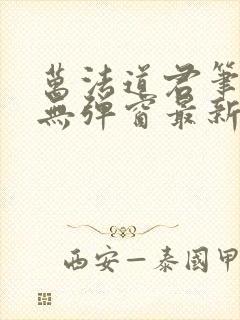 萬法道君筆
無彈窗最新
西安—泰國甲